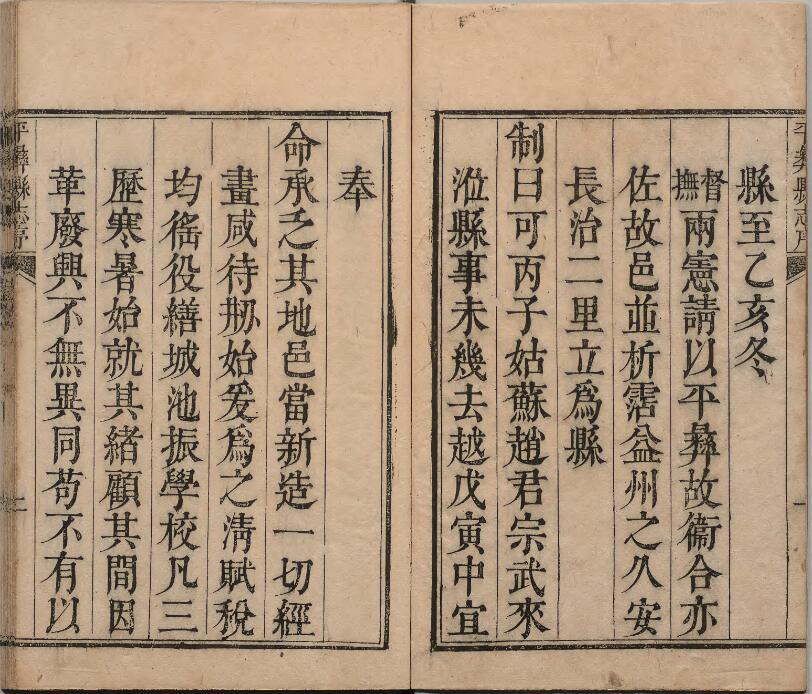 縣至乙亥冬
督撫兩憲請以平彝故衞合亦
佐故邑並析霑益州之久安
長治二里立爲縣
制曰可丙子姑蘇趙君宗武來
涖縣事未幾去越戊寅中宜
奉
命承乏其地邑當新造一切經
畫咸待刱始爰爲之淸賦稅
均徭役繕城池振學校凡三
歷寒暑始就其緒顧其間因
革廢興不無異同苟不有以
平彝縣志序
二